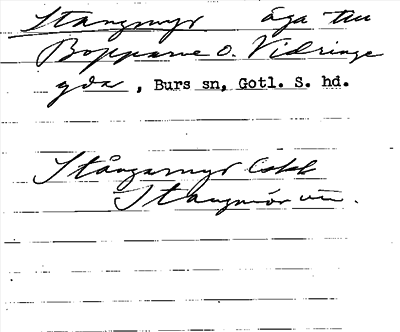 Stangmyr äga till
Bopparve o. Vidringe
yda, Burs sn, Gotl. S. hd.
Stångmyr
Stangmör